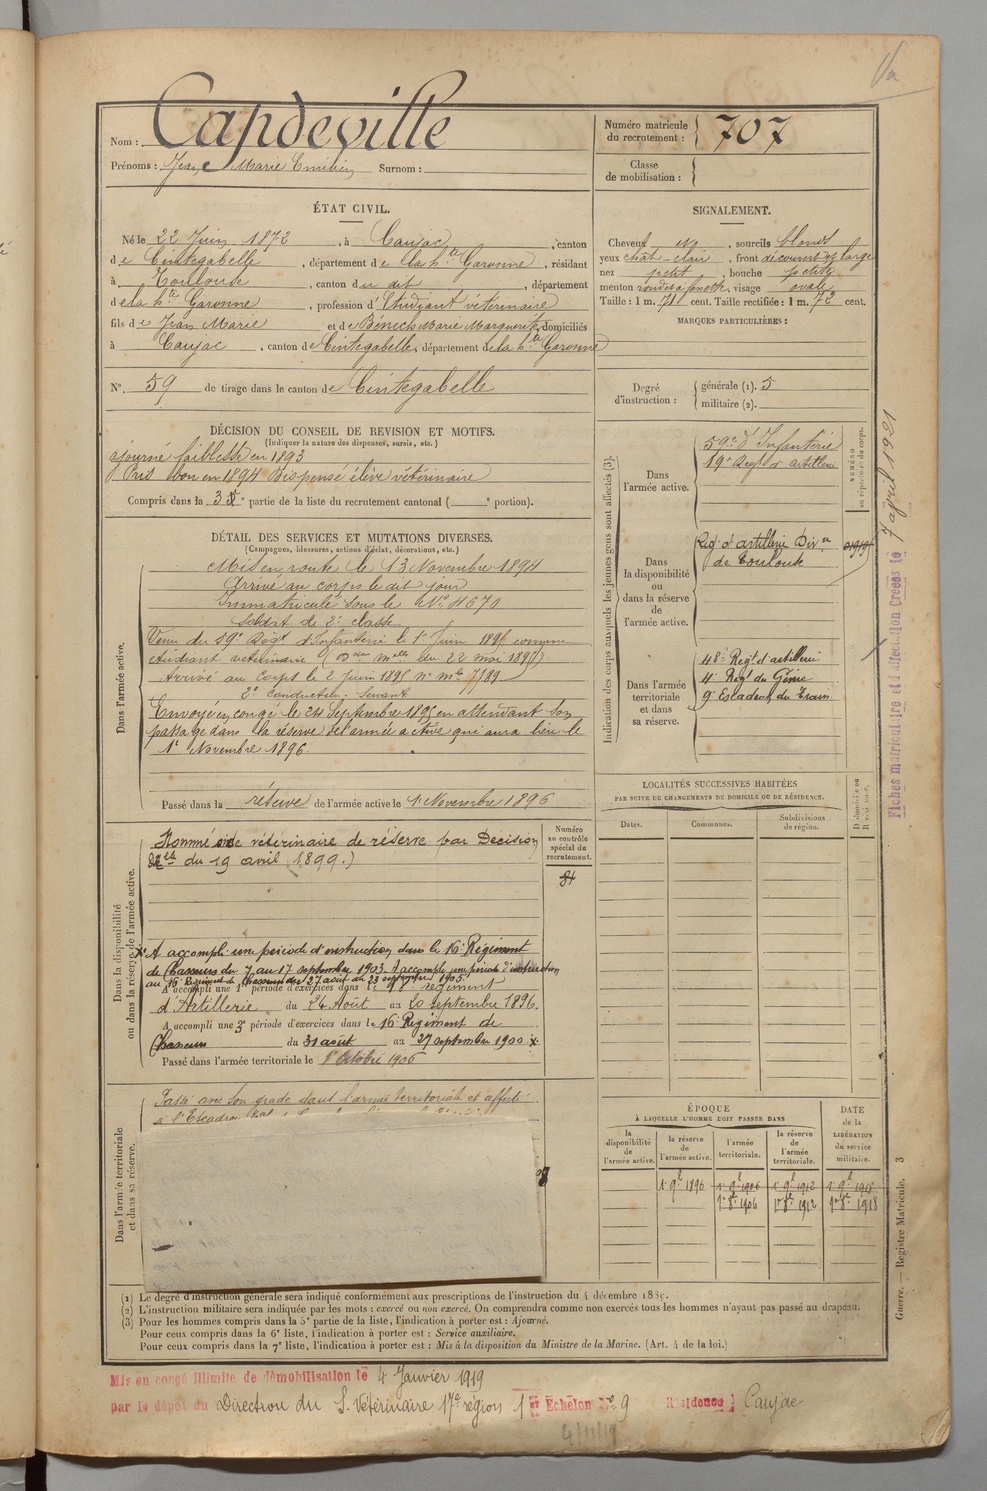 Nom : Capdeville
Prénoms : Jean Marie Emilien Surnom :
Numéro matricule du recrutement : 707
Classe de mobilisation :
ÉTAT CIVIL.
Né le 22 Juin 1872, à Caujac, canton
de Cintegabelle, département de la hte Garonne, résidant
à Toulouse, canton du dit, département
de la hte Garonne, profession d'Etudiant vétérinaire
fils de Jean Marie et de Bénech Marie Marguerite, domiciliés
à Caujac, canton de Cintegabelle, département de la hte Garonne
N° 59 de tirage dans le canton de Cintegabelle
SIGNALEMENT.
Cheveux et, sourcils blonds
yeux chât-clair, front découvert large
nez petit, bouche petite
menton rond et à fossette, visage ovale
Taille : 1 m. 71 cent. Taille rectifiée : 1 m. 72 cent.
MARQUES PARTICULIÈRES :
Degré d'instruction : générale (1). 5
militaire (2).
DÉCISION DU CONSEIL DE REVISION ET MOTIFS.
(Indiquer la nature des dispenses, sursis, etc.)
ajourné faiblesse en 1893
Pris bon en 1894 Dispensé élève vétérinaire
Compris dans la 3e partie de la liste du recrutement cantonal ( e portion).
DÉTAIL DES SERVICES ET MUTATIONS DIVERSES.
(Campagnes, blessures, actions d'éclat, décorations, etc.)
Dans l'armée active.
Mis en route le 13 Novembre 1894
Arrivé au corps le dit jour
Immatriculé sous le No 4670
Soldat de 2e classe
Venu du 59e Régt d'Infanterie le 1er Juin 1895 comme
étudiant vétérinaire (Don mlle du 22 mai 1895)
Arrivé au Corps le 2 Juin 1895 no mle 7789
2e Conducteur Servant
Envoyé en congé le 24 Septembre 1895 en attendant son
passage dans la réserve de l'armée active qui aura lieu le
1er Novembre 1896
Passé dans la réserve de l'armée active le 1 Novembre 1896
Indication des corps auxquels les jeunes gens sont affectés (3).
NUMÉRO au répertoire du corps.
Dans l'armée active.
59e d'Infanterie
19e Régt d'artillerie
Dans la disponibilité ou dans la réserve de l'armée active.
Régt d'artillerie Divre
de Toulouse
Dans l'armée territoriale et dans sa réserve.
48e Régt d'artillerie
4e Régt du Génie
9e Escadron du Train
LOCALITÉS SUCCESSIVES HABITÉES
PAR SUITE DE CHANGEMENTS DE DOMICILE OU DE RÉSIDENCE.
Dates. Communes. Subdivisions de région. D domicile ou R résidence.
Dans la disponibilité ou dans la réserve de l'armée active.
Numéro au contrôle spécial du recrutement.
84
Nommé aide vétérinaire de réserve par Décision
du 19 avril 1899.)
X A accompli une période d'instruction dans le 16e Régiment
de Chasseurs du 7 au 17 septembre 1903. A accompli une période d'instruction
au 16e Régiment de Chasseurs du 27 août au 23 septembre 1905.
A accompli une 1re période d'exercices dans le 9e régiment
d'Artillerie du 24 Août au 20 septembre 1896.
A accompli une 3e période d'exercices dans le 16e Régiment de
Chasseurs du 31 août au 27 septembre 1900 X
Passé dans l'armée territoriale le 1er Octobre 1906
Dans l'armée territoriale et dans sa réserve.
Passé avec son grade dans l'armée territoriale et affecté
à l'Escadron
ÉPOQUE
À LAQUELLE L'HOMME DOIT PASSER DANS
la disponibilité de l'armée active. la réserve de l'armée active. l'armée territoriale. la réserve de l'armée territoriale.
DATE de la LIBÉRATION du service militaire.
1er 9bre 1896 1er 9bre 1906 1er 9bre 1912 1er 9bre 1918
1er 8bre 1906 1er 8bre 1912 1er 8bre 1918
(1) Le degré d'instruction générale sera indiqué conformément aux prescriptions de l'instruction du 4 décembre 1889.
(2) L'instruction militaire sera indiquée par les mots : exercé ou non exercé. On comprendra comme non exercés tous les hommes n'ayant pas passé au drapeau.
(3) Pour les hommes compris dans la 5e partie de la liste, l'indication à porter est : Ajourné.
Pour ceux compris dans la 6e liste, l'indication à porter est : Service auxiliaire.
Pour ceux compris dans la 7e liste, l'indication à porter est : Mis à la disposition du Ministre de la Marine. (Art. 4 de la loi.)
Mis en congé illimité de démobilisation le 4 Janvier 1919
par le dépôt du Direction du S. Vétérinaire 17e région 1er Echelon No 9 Résidence : Caujac
4/11/19
Fiches matriculaire et d'affectation créées le 7 avril 1921
Guerre. — Registre Matricule. 3